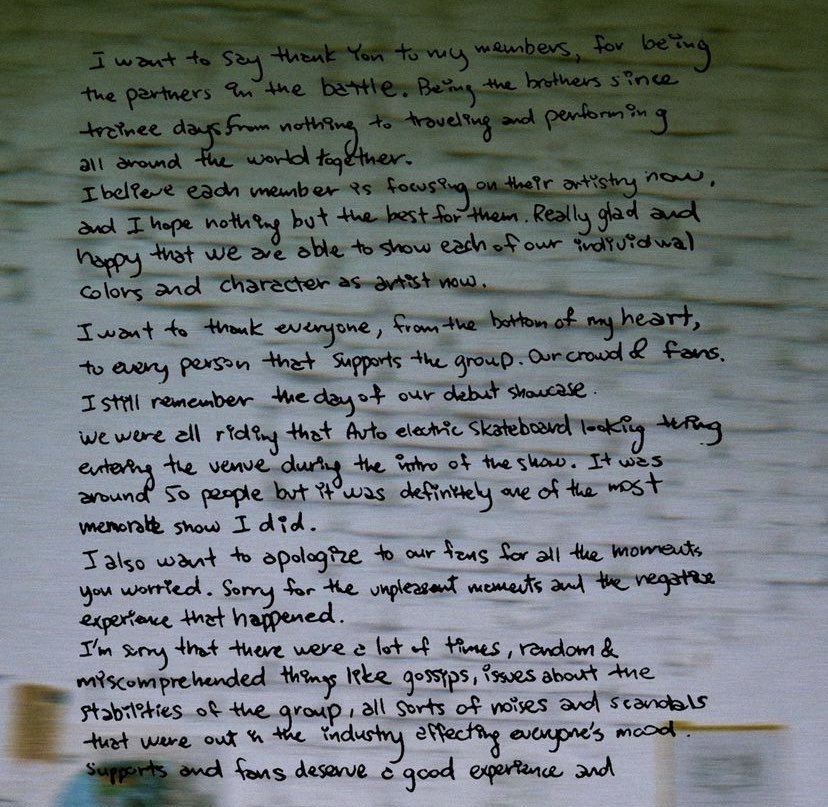 I want to say thank You to my members, for being
the partners in the battle. Being the brothers since
trainee days from nothing to traveling and performing
all around the world together.
I believe each member is focusing on their artistry now,
and I hope nothing but the best for them. Really glad and
happy that we are able to show each of our individual
colors and character as artist now.
I want to thank everyone, from the bottom of my heart,
to every person that supports the group. Our crowd & fans.
I still remember the day of our debut showcase.
we were all riding that Auto electric skateboard looking
entering the venue during the intro of the show. It was
around 50 people but it was definitely one of the most
memorable show I did.
I also want to apologize to our fans for all the moments
you worried. Sorry for the unpleasant moments and the negative
experience that happened.
I'm sorry that there were a lot of times, random &
miscomprehended things like gossips, issues about the
stabilities of the group, all sorts of noises and scandals
that were out in the industry affecting everyone's mood.
supports and fans deserve a good experience and